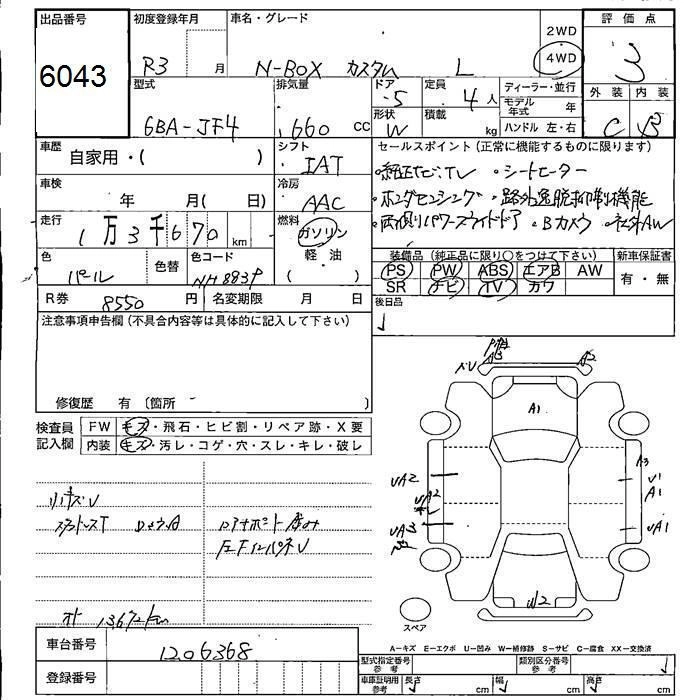 出品番号
6043
初度登録年月
R3 月
車名・グレード
N-BOX カスタム L
2WD
4WD
評価点
3
外装 内装
C B
型式
6BA-JF4
排気量
660 cc
ドア
5
形状
W
定員
4 人
積載
kg
ディーラー・並行
モデル年式 年
ハンドル 左・右
車歴
自家用・( )
シフト
IAT
車検
年 月( 日)
冷房
AAC
走行
1万3千670 km
燃料
ガソリン
軽・油
( )
色
パール
色替
色コード
NH883P
R券 8550 円
名変期限 月 日
セールスポイント(正常に機能するものに限ります)
・純正ナビ、TV ・シートヒーター
・ホンダセンシング ・路外逸脱抑制機能
・両側パワースライドドア ・Bカメラ ・社外AW
装備品(純正品に限り○をつけて下さい)
PS PW ABS エアB AW
SR ナビ TV カワ
新車保証書
有・無
後日品
注意事項申告欄(不具合内容等は具体的に記入して下さい)
修復歴 有〔箇所 〕
検査員記入欄
FW キズ・飛石・ヒビ割・リペア跡・X要
内装 キズ・汚レ・コゲ・穴・スレ・キレ・破レ
A3
A2
A1
UA2
UA2
UA3
A3
U1
A1
UA1
W2
スペア
A-キズ E-エクボ U-凹み W-補修跡 S-サビ C-腐食 XX-交換済
車台番号
1206368
登録番号
型式指定番号
参考
類別区分番号
参考
車庫証明用
参考
長さ cm
幅 cm
高さ cm